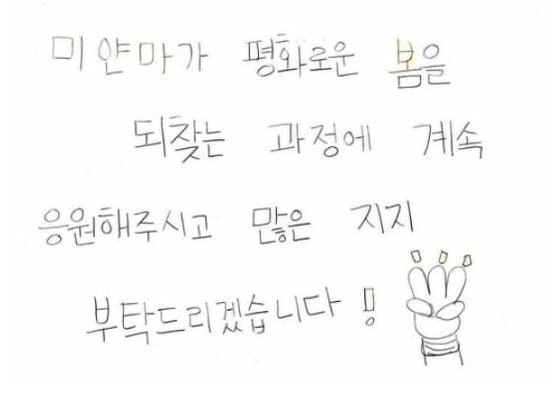 미얀마가 평화로운 봄을
되찾는 과정에 계속
응원해주시고 많은 지지
부탁드리겠습니다!